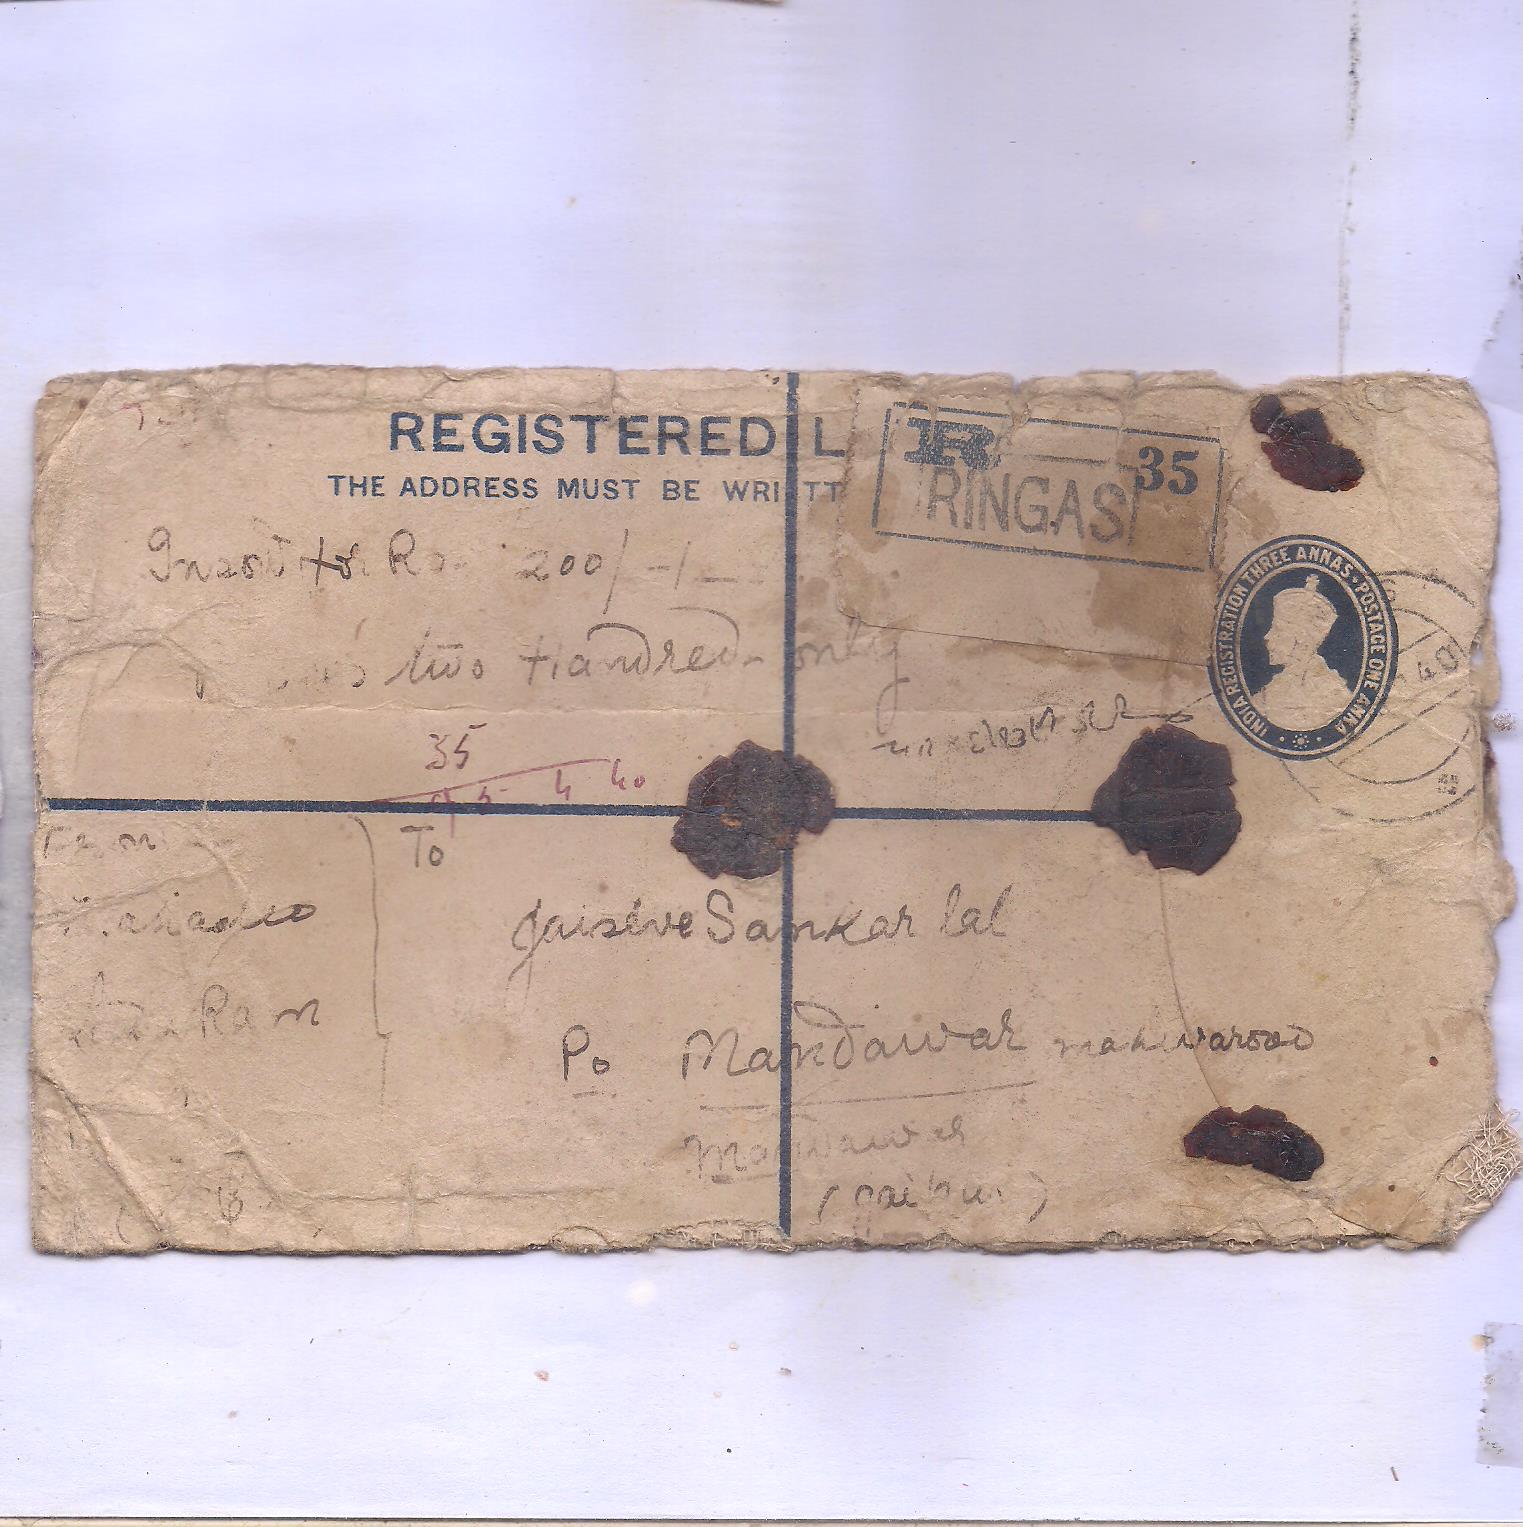 REGISTERED L
THE ADDRESS MUST BE WRITT
R 35
RINGAS
INDIA REGISTRATION THREE ANNAS · POSTAGE ONE ANNA
40
for Rs. 200/-/-
two Handred only
35
5 4 40
From
To
Ram
Jaiseve Sankar lal
Po Mandawar mahwaroad
Mandawar
(Jaipur)